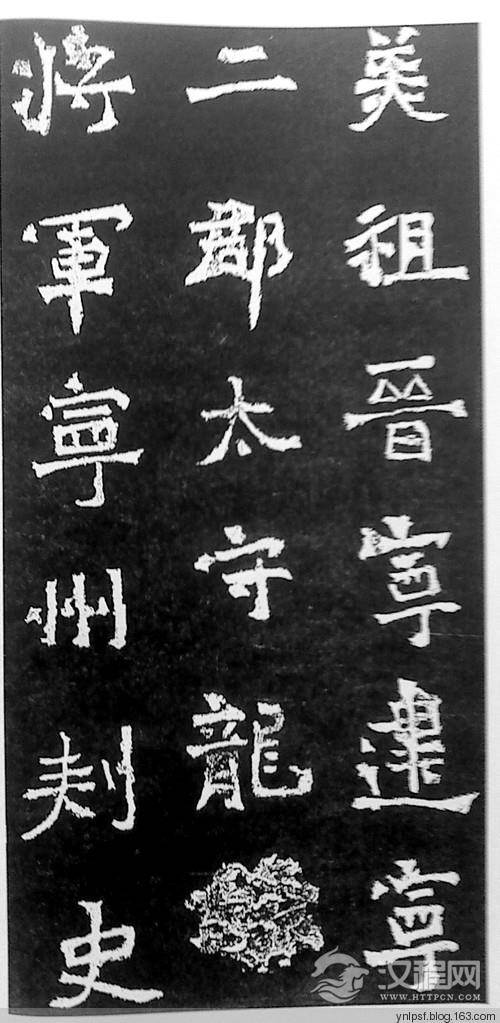 美祖晉寧建寧
二郡太守龍
將軍寧州刾史
汉程网
WWW.HTTPCN.COM
ynlpsf.blog.163.com